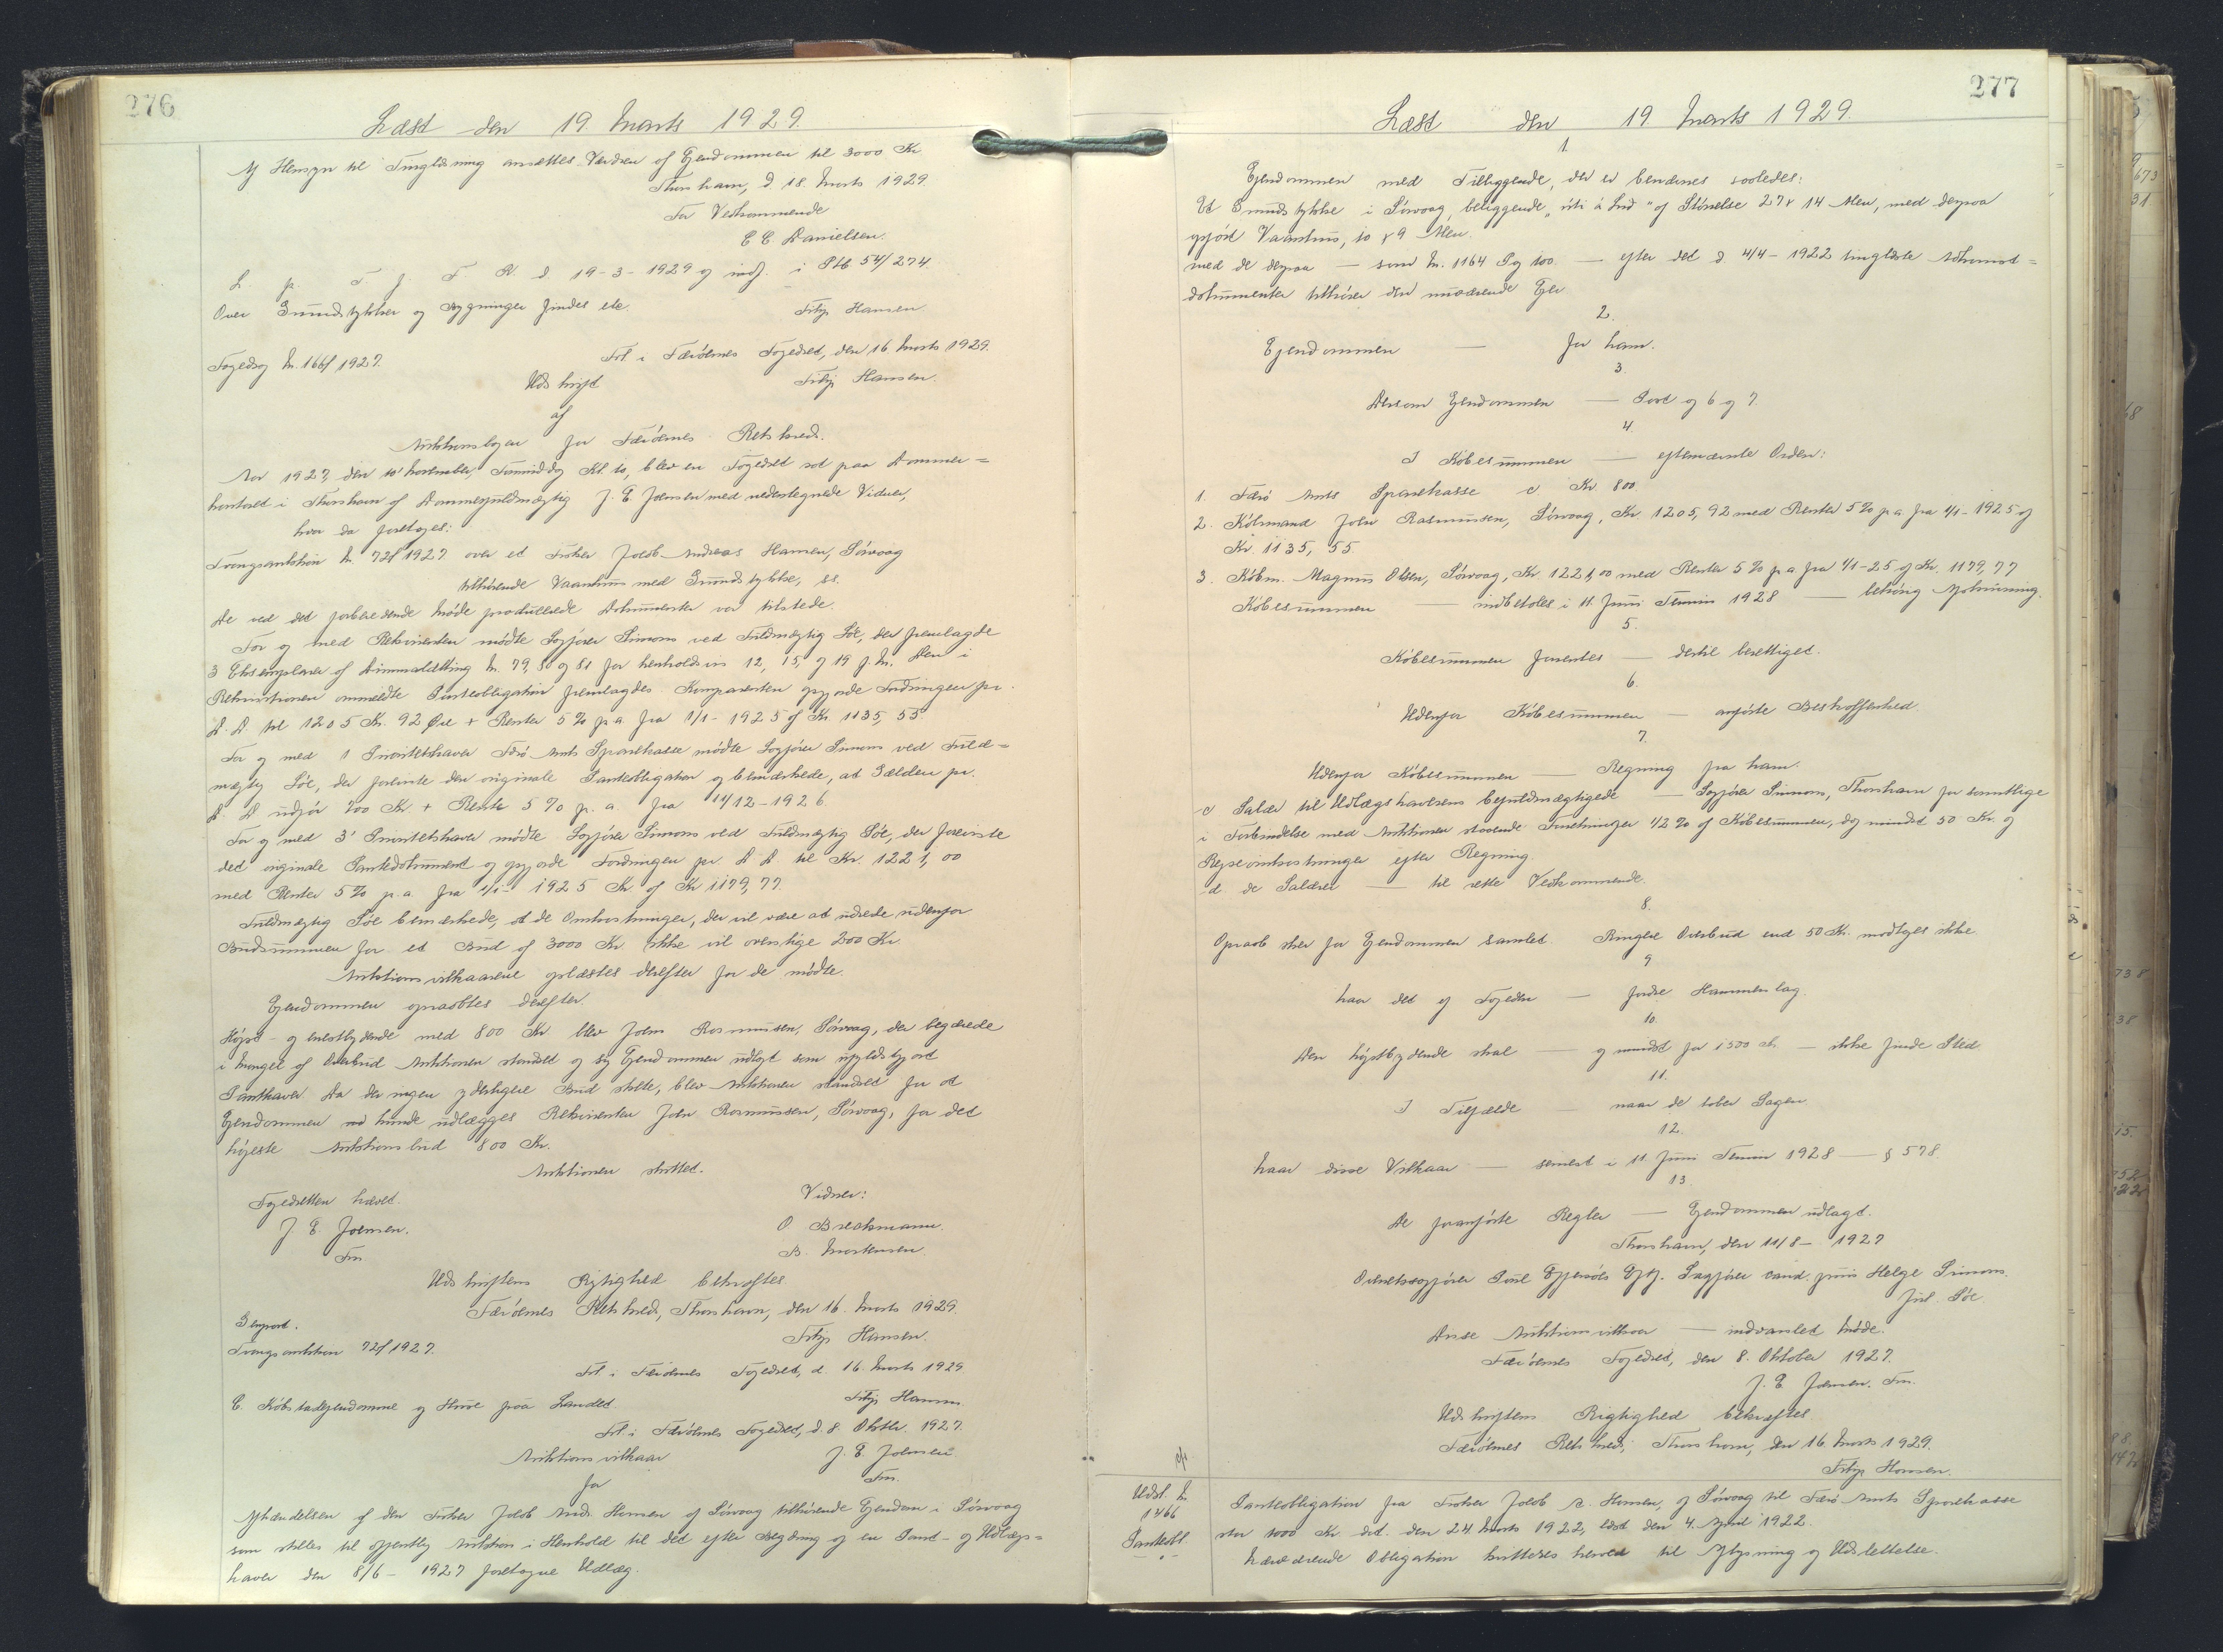 276
Læst den 19. Marts 1929.
Af Hensyn til Tinglæsning ansættes Værdien af Ejendommen til 3000 Kr
Thorshavn, d. 18. Marts 1929.
For Vedkommende
E C. Danielsen.
L. p. T. f. F. R. d. 19-3-1929 og indf. i Ptb 54/274
Over Grundstykker og Bygninger findes ete.
Filip Hansen
Fogedsag Nr. 166/1927.
Frl. i Færøernes Fogedret, den 16. Marts 1929.
Udskrift
Filip Hansen.
af
Auktionsbogen for Færøernes Retskreds.
Aar 1927, den 10' November, Formiddag Kl. 10, blev en Fogedret sat paa Dommer=
kontoret i Thorshavn af Dommerfuldmægtig J. E. Joensen med undertegnede Vidner,
hvor da foretoges:
Tvangsauktion Nr. 72/1927 over et Fisker Jakob Andreas Hansen, Sørvaag
tilhørende Vaanhus med Grundstykke, ss.
De ved det forberedende Møde producerede Dokumenter var tilstede.
For og med Rekvirenten mødte Sagfører Simons ved Fuldmægtig Søe, der fremlagde
3 Eksemplarer af Dimmalætting Nr. 79, 80 og 81 for henholdsvis 12, 15, og 19 f. M. Den i
Rekvisitionen ommeldte Panteobligation fremlagdes. Komparenten opgjorde Fordringen pr.
D. D. til 1205 Kr. 92 Øre + Renter 5 % p a. fra 1/1-1925 af Kr 1135,55.
For og med 1 Prioritetshaver Færø Amts Sparekasse mødte Sagfører Simons ved Fuld=
mægtig Søe, der foreviste den originale Panteobligation og bemærkede, at Gælden pr.
D. D. udgør 800 Kr + Rente 5 % p. a. fra 11/12-1926.
For og med 3' Prioritetshaver mødte Sagfører Simons ved Fuldmægtig Søe, der foreviste
det originale Pantedokument og opgjorde Fordringen pr. D D. til Kr. 1221,00
med Renter 5 % p. a. fra 1/1- 1925 Kr. af Kr 1179,77.
Fuldmægtig Søe bemærkede, at de Omkostninger, der vil være at udrede udenfor
Budsummen for et Bud af 3000 Kr ikke vil overstige 200 Kr
Auktionsvilkaarene oplæstes derefter for de mødte.
Ejendommen opraabtes derefter.
Højst- og enestbydende med 800 Kr. blev Johs Rasmussen, Sørvaag, der begærede
i Mangel af Overbud Auktionen standset og sig Ejendommen udlagt som ufyldstgjort
Panthaver. Da der ingen yderligere Bud skete, blev Auktionen standset for at
Ejendommen nu kunde udlægges Rekvirenten Johs Rasmussen, Sørvaag, for det
højeste Auktionsbud 800 Kr.
Auktionen sluttet.
Fogedretten hævet.
Vidner:
J. E. Joensen.
O. Breckmann.
Fm
B. Mortensen.
Udskriftens Rigtighed bekræftes
Færøernes Retskreds, Thorshavn, den 16. Marts 1929.
Genpart.
Filip Hansen.
Tvangsauktion 72/1927.
Frl. i Færøernes Fogedret, d. 16. Marts 1929.
C. Købstadejendomme og Huse paa Landet.
Filip Hansen
Frl. i Færøernes Fogedret, d. 8. Oktbr. 1927.
Auktionsvilkaar
J. E. Joensen
for
Fm.
Afhændelsen af den Fisker Jakob Andr. Hansen af Sørvaag tilhørende Ejendom i Sørvaag
som stilles til offentlig Auktion i Henhold til det efter Begæring af en Pant- og Udlægs=
haver den 8/6- 1927 foretagne Udlæg.
277
Læst den 19 Marts 1929.
1.
Ejendommen med Tilliggende, der er benævnes saaledes:
Et Grundstykke i Sørvaag, beliggende "úti á Lið" af Størrelse 27 x 14 Alen, med derpaa
opført Vaanhus, 10 x 9 Alen.
med de derpaa — samt Nr. 1164 og 100 — efter det d 4/4-1922 tinglæste Adkomst=
dokumenter tilhører den nuværende Ejer
2.
Ejendommen — for ham.
3.
Dersom Ejendommen — Post og 6 og 7.
4.
I Købesummen — efternævnte Orden:
1. Færø Amts Sparekasse c Kr. 800
2. Købmand Johs Rasmussen, Sørvaag, Kr. 1205,92 med Renter 5 % p a fra 1/1-1925 af
Kr. 1135,55.
3. Købm. Magnus Olsen, Sørvaag, Kr. 1221,00 med Renter 5 % p a fra 1/1-25 af Kr. 1179,77
Købesummen — indbetales i 11. Juni Termin 1928 — behørig Aflysning.
5.
Købesummen forrentes — dertil berettiget.
6.
Udenfor Købesummen — anførte Beskaffenhed.
7.
Udenfor Købesummen — Regning fra ham.
c Salær til Udlægshaverens befuldmægtigede — Sagfører Simons, Thorshavn for samtlige
i Forbindelse med Auktionen staaende Forretninger 1/2 % af Købesummen, dog mindst 50 Kr. og
Rejseomkostninger efter Regning.
d. de Salærer — til rette Vedkommende.
8.
Opraab sker for Ejendommen samlet. Ringere Overbud end 50 Kr. modtages ikke.
9
Naar det af Fogeden — fjerde Hammerslag
10.
Den højstbydende skal — og mindst for 1500 Kr. — ikke finde Sted
11.
I Tilfælde — naar de taber Sagen
12.
Naar disse Vilkaar — senest i 11. Juni Termin 1928 — § 578
13.
De foranførte Regler — Ejendommen udlagt.
Thorshavn, den 11/8- 1927
Overretssagfører Poul Eftf. Sagfører cand. juris Helge Simons.
Søe
Disse Auktionsvilkaar — indvarslet Møde.
Færøernes Fogedret, den 8. Oktober 1927.
J. E. Joensen. Fm.
Udskriftens Rigtighed bekræftes
Færøernes Retskreds, Thorshavn, den 16. Marts 1929.
Filip Hansen.
Udsl. Nr
1466
Panteobl
Panteobligation fra Fisker Jakob A. Hansen, af Sørvaag til Færø Amts Sparekasse
stor 1000 Kr dat. den 24 Marts 1922, læst den 4. April 1922.
Nærværende Obligation kvitteres herved til Aflysning og Udslettelse.